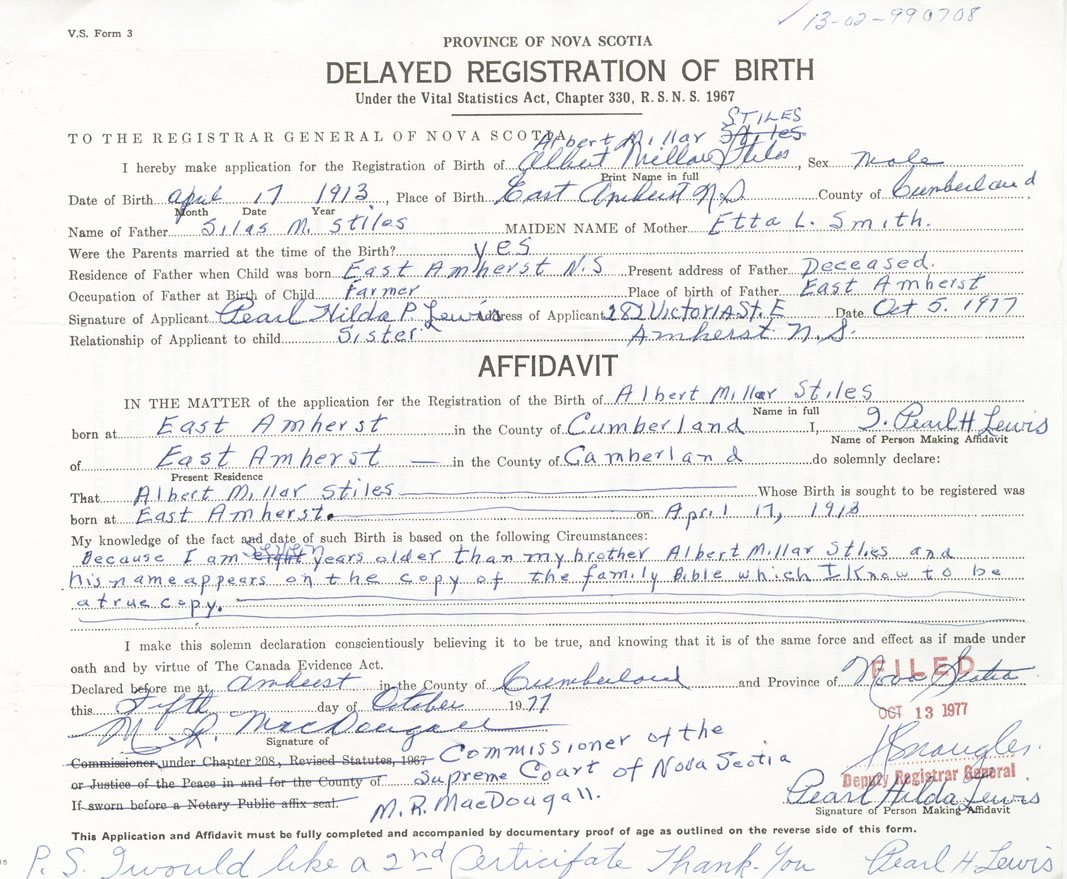 13-02-990708
V.S. Form 3
PROVINCE OF NOVA SCOTIA
DELAYED REGISTRATION OF BIRTH
Under the Vital Statistics Act, Chapter 330, R.S.N.S. 1967
STILES
TO THE REGISTRAR GENERAL OF NOVA SCOTIA, Albert Millar Stiles
I hereby make application for the Registration of Birth of Albert Millar Stiles, Sex male
Print Name in full
Date of Birth April 17 1913, Place of Birth East Amherst N.S. County of Cumberland
Month Date Year
Name of Father Silas M. Stiles MAIDEN NAME of Mother Etta L. Smith.
Were the Parents married at the time of the Birth? yes
Residence of Father when Child was born East Amherst N.S Present address of Father Deceased.
Occupation of Father at Birth of Child Farmer Place of birth of Father East Amherst
Signature of Applicant Pearl Hilda P. Lewis Address of Applicant 282 Victoria St. E Date Oct 5. 1977
Relationship of Applicant to child Sister Amherst N.S.
AFFIDAVIT
IN THE MATTER of the application for the Registration of the Birth of Albert Millar Stiles
Name in full
born at East Amherst in the County of Cumberland I, I. Pearl H Lewis
Name of Person Making Affidavit
of East Amherst — in the County of Camberland do solemnly declare:
Present Residence
That Albert Millar Stiles Whose Birth is sought to be registered was
born at East Amherst. on April 17, 1913
My knowledge of the fact and date of such Birth is based on the following Circumstances:
Because I am eight years older than my brother Albert Millar Stiles and
his name appears on the copy of the family Bible which I Know to be
a true copy.
I make this solemn declaration conscientiously believing it to be true, and knowing that it is of the same force and effect as if made under
oath and by virtue of The Canada Evidence Act.
Declared before me at Amherst in the County of Cumberland and Province of Nova Scotia
FILED
this Fifth day of October 1977
OCT 13 1977
M. R. MacDougall
Signature of
Commissioner under Chapter 208, Revised Statutes, 1967 Commissioner of the
or Justice of the Peace in and for the County of Supreme Court of Nova Scotia
Deputy Registrar General
If sworn before a Notary Public affix seal. M.R. MacDougall.
Pearl Hilda Lewis
Signature of Person Making Affidavit
This Application and Affidavit must be fully completed and accompanied by documentary proof of age as outlined on the reverse side of this form.
P.S. I would like a 2nd Certificate Thank-You Pearl H. Lewis